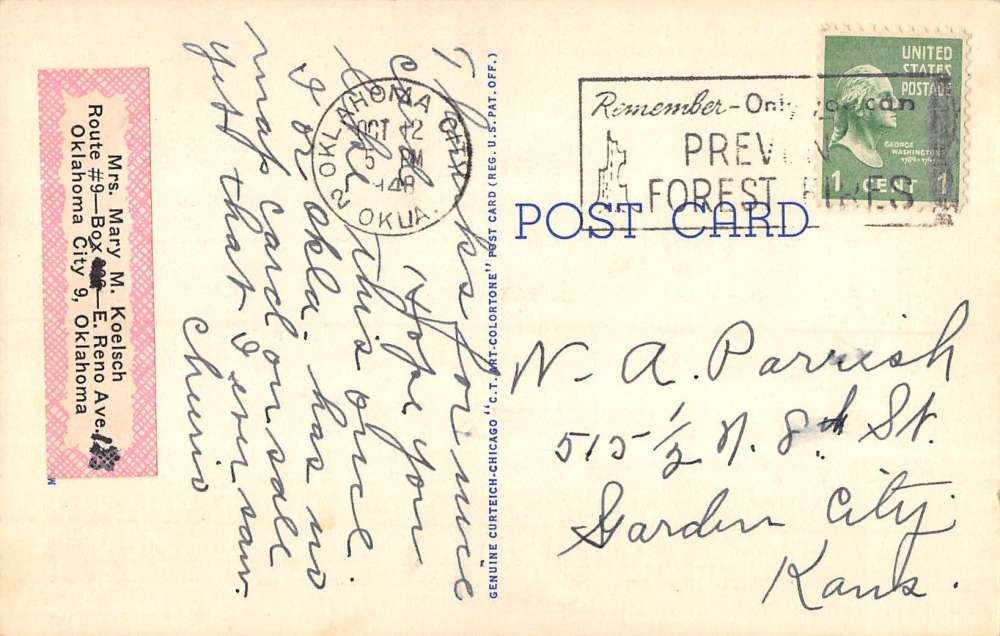 Thanks for nice
card. Hope you
like this once.
I or okla. has no
map card on sale
yet that I ever saw.
Cheerio
Mrs. Mary M. Koelsch
Route #9—Box —E. Reno Ave.
Oklahoma City 9, Oklahoma
M
GENUINE CURTEICH-CHICAGO "C.T. ART-COLORTONE" POST CARD (REG. U.S. PAT. OFF.)
OKLAHOMA CITY
OCT 12
5 PM
1948
2 OKLA.
Remember-Only you can
PREVENT
FOREST FIRES
UNITED
STATES
POSTAGE
GEORGE
WASHINGTON
1 CENT 1
POST CARD
N. A. Parrish
515 1/2 N. 8th St.
Garden City
Kans.